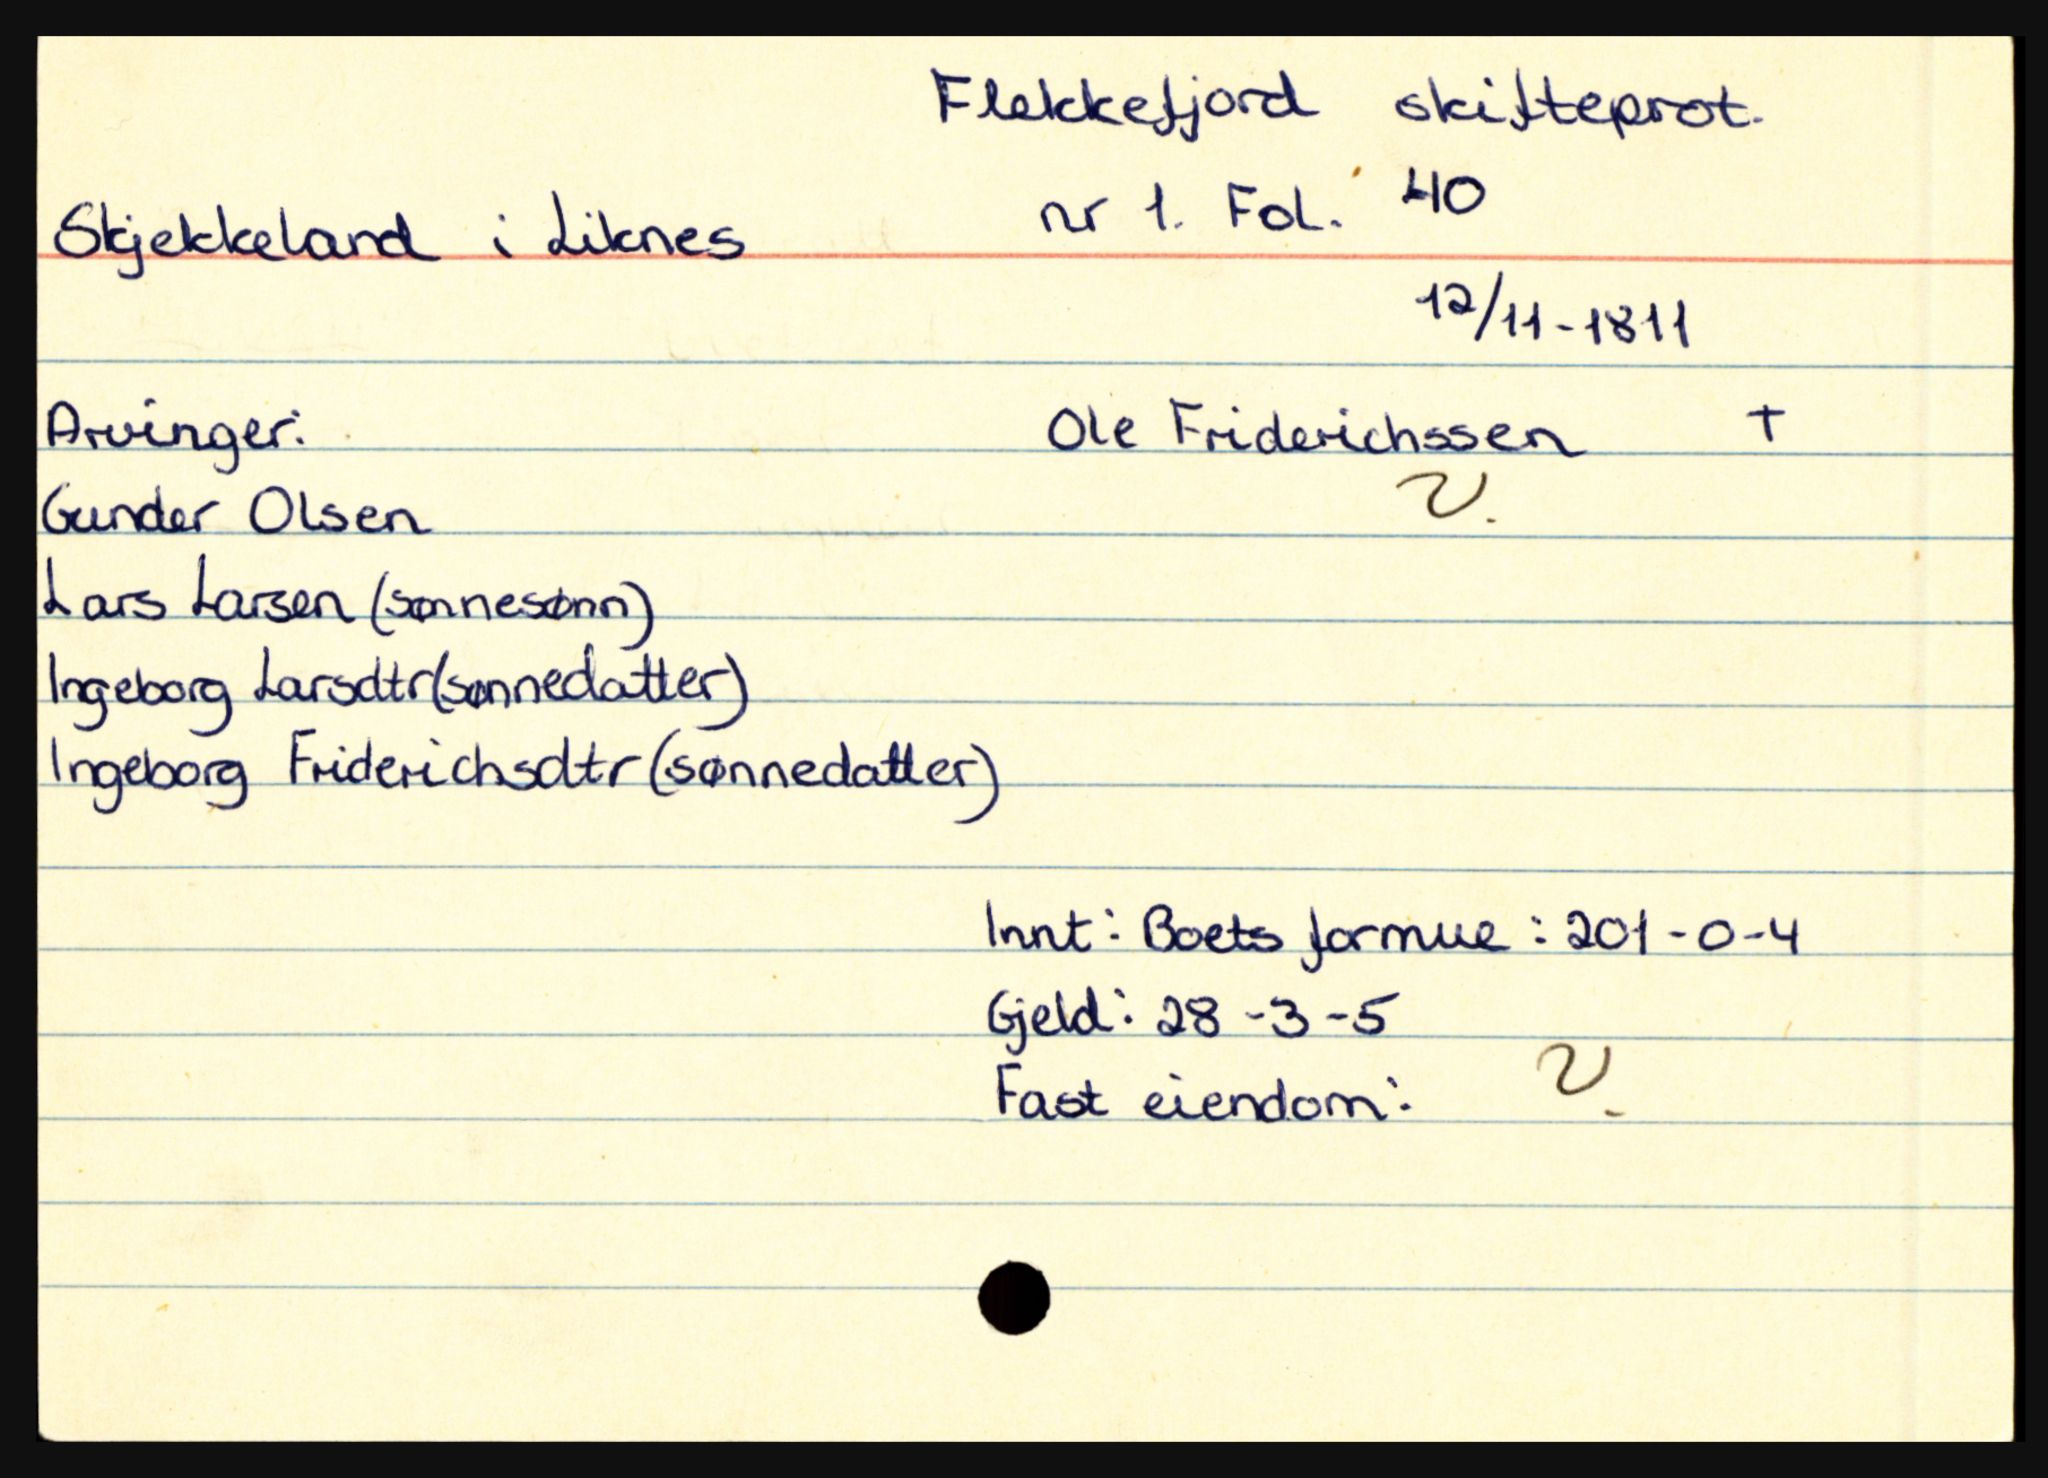 Flekkefjord skifteprot.
nr 1. Fol. 40
Skjekkeland i Liknes
12/11-1811
Arvinger: Ole Friderichssen +
Gunder Olsen
Lars Larsen (sønnesønn)
Ingeborg Larsdtr (sønnedatter)
Ingeborg Friderichsdtr (sønnedatter)
Innt: Boets formue: 201-0-4
Gjeld: 28-3-5
Fast eiendom: